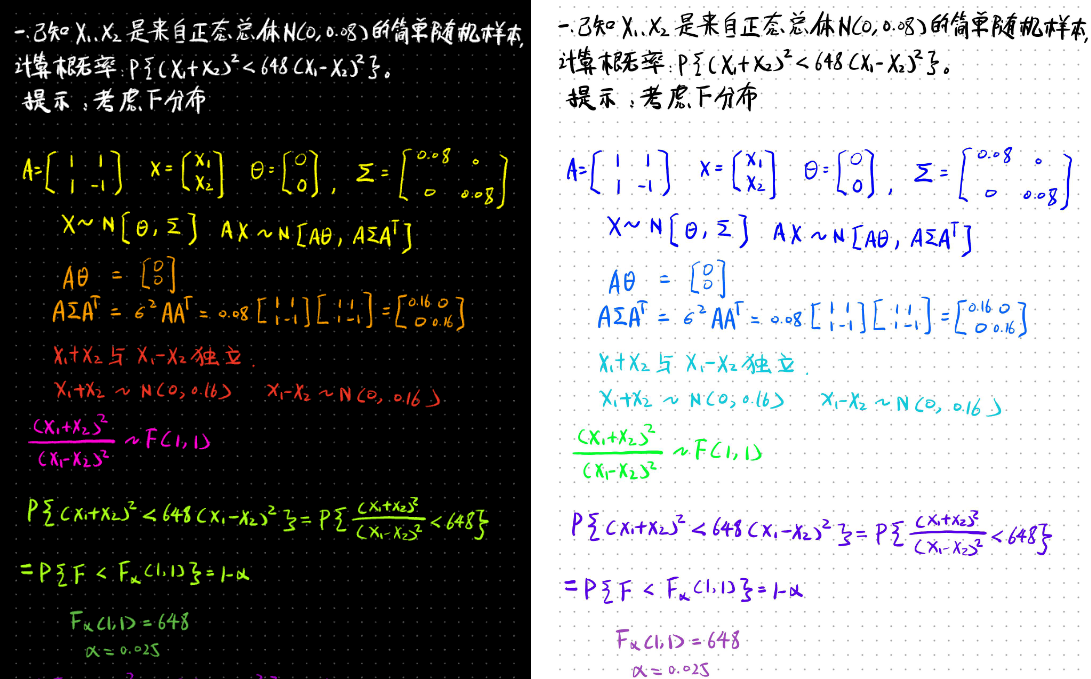 一.已知 X₁、X₂ 是来自正态总体N(0, 0.08)的简单随机样本,
计算概率:P{(X₁+X₂)²<648(X₁-X₂)²}。
提示:考虑F分布
A=[1 1; 1 -1] X=[X₁; X₂] θ=[0; 0], Σ=[0.08 0; 0 0.08]
X~N[θ, Σ] AX~N[Aθ, AΣAᵀ]
Aθ = [0; 0]
AΣAᵀ = σ²AAᵀ = 0.08[1 1; 1 -1][1 1; 1 -1]=[0.16 0; 0 0.16]
X₁+X₂与 X₁-X₂独立.
X₁+X₂ ~ N(0, 0.16) X₁-X₂ ~ N(0, 0.16)
(X₁+X₂)²/(X₁-X₂)² ~F(1,1)
P{(X₁+X₂)²<648(X₁-X₂)²}=P{(X₁+X₂)²/(X₁-X₂)²<648}
=P{F < Fα(1,1)}=1-α
Fα(1,1)=648
α=0.025
一.已知 X₁、X₂ 是来自正态总体N(0, 0.08)的简单随机样本,
计算概率:P{(X₁+X₂)²<648(X₁-X₂)²}。
提示:考虑F分布
A=[1 1; 1 -1] X=[X₁; X₂] θ=[0; 0], Σ=[0.08 0; 0 0.08]
X~N[θ, Σ] AX~N[Aθ, AΣAᵀ]
Aθ = [0; 0]
AΣAᵀ = σ²AAᵀ = 0.08[1 1; 1 -1][1 1; 1 -1]=[0.16 0; 0 0.16]
X₁+X₂与 X₁-X₂独立.
X₁+X₂ ~ N(0, 0.16) X₁-X₂ ~ N(0, 0.16)
(X₁+X₂)²/(X₁-X₂)² ~F(1,1)
P{(X₁+X₂)²<648(X₁-X₂)²}=P{(X₁+X₂)²/(X₁-X₂)²<648}
=P{F < Fα(1,1)}=1-α
Fα(1,1)=648
α=0.025